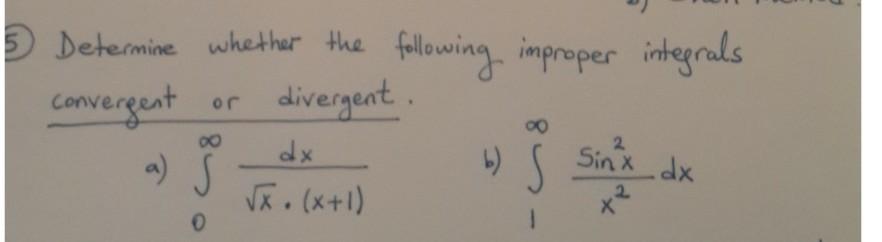 5) Determine whether the following improper integrals
convergent or divergent.
a) ∫₀^∞ dx / (√x · (x+1)) b) ∫₁^∞ Sin²x / x² dx